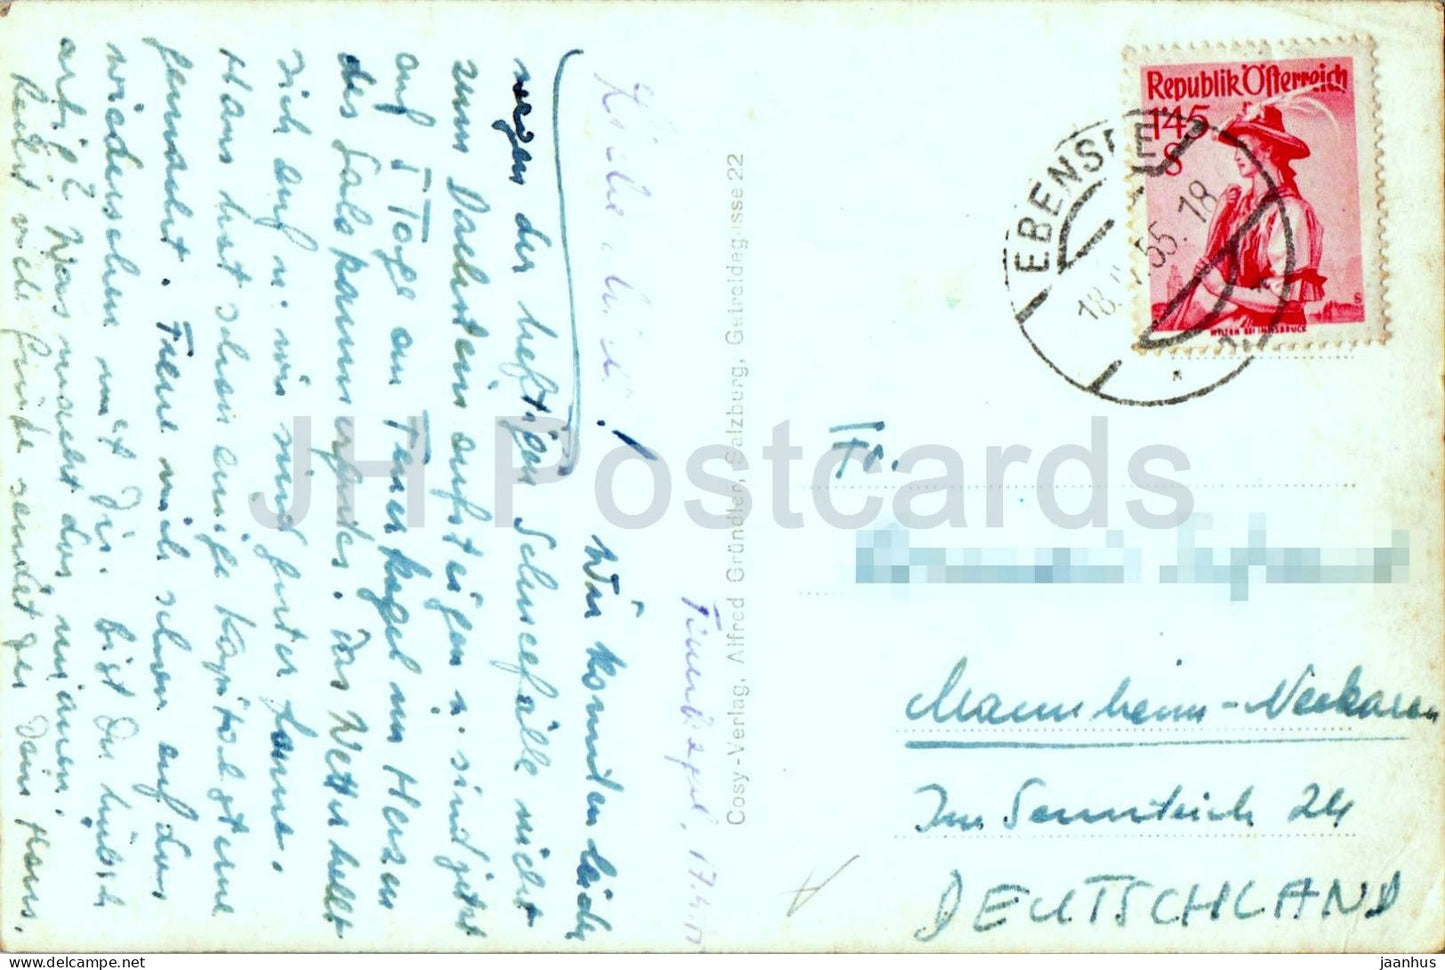 Liebe
Feuerkogel, 17.4.
Wir konnten leider
wegen der heftigen Schneefälle nicht
zum Dachstein aufsteigen u. sind jetzt
auf Tage am Feuerkogel im Herzen
des Salzkammergutes. Das Wetter hellt
sich auf u. wir sind guter Laune.
Hans hat schon einige
gemacht. Freue mich schon auf das
wiedersehen mit Dir. Bist Du hübsch
artig? Was macht das
viele Grüße sendet Dein Hans.
Cosy-Verlag, Alfred Gründler, Salzburg, Getreidegasse 22
Republik Österreich
1'45
S
WILTEN BEI INNSBRUCK
EBENSEE
18. 55. 18
Fr.
Mannheim-Neckarau
Im Sennteich 24
DEUTSCHLAND
JH Postcards
https://jhpostcards.com
jaanhus